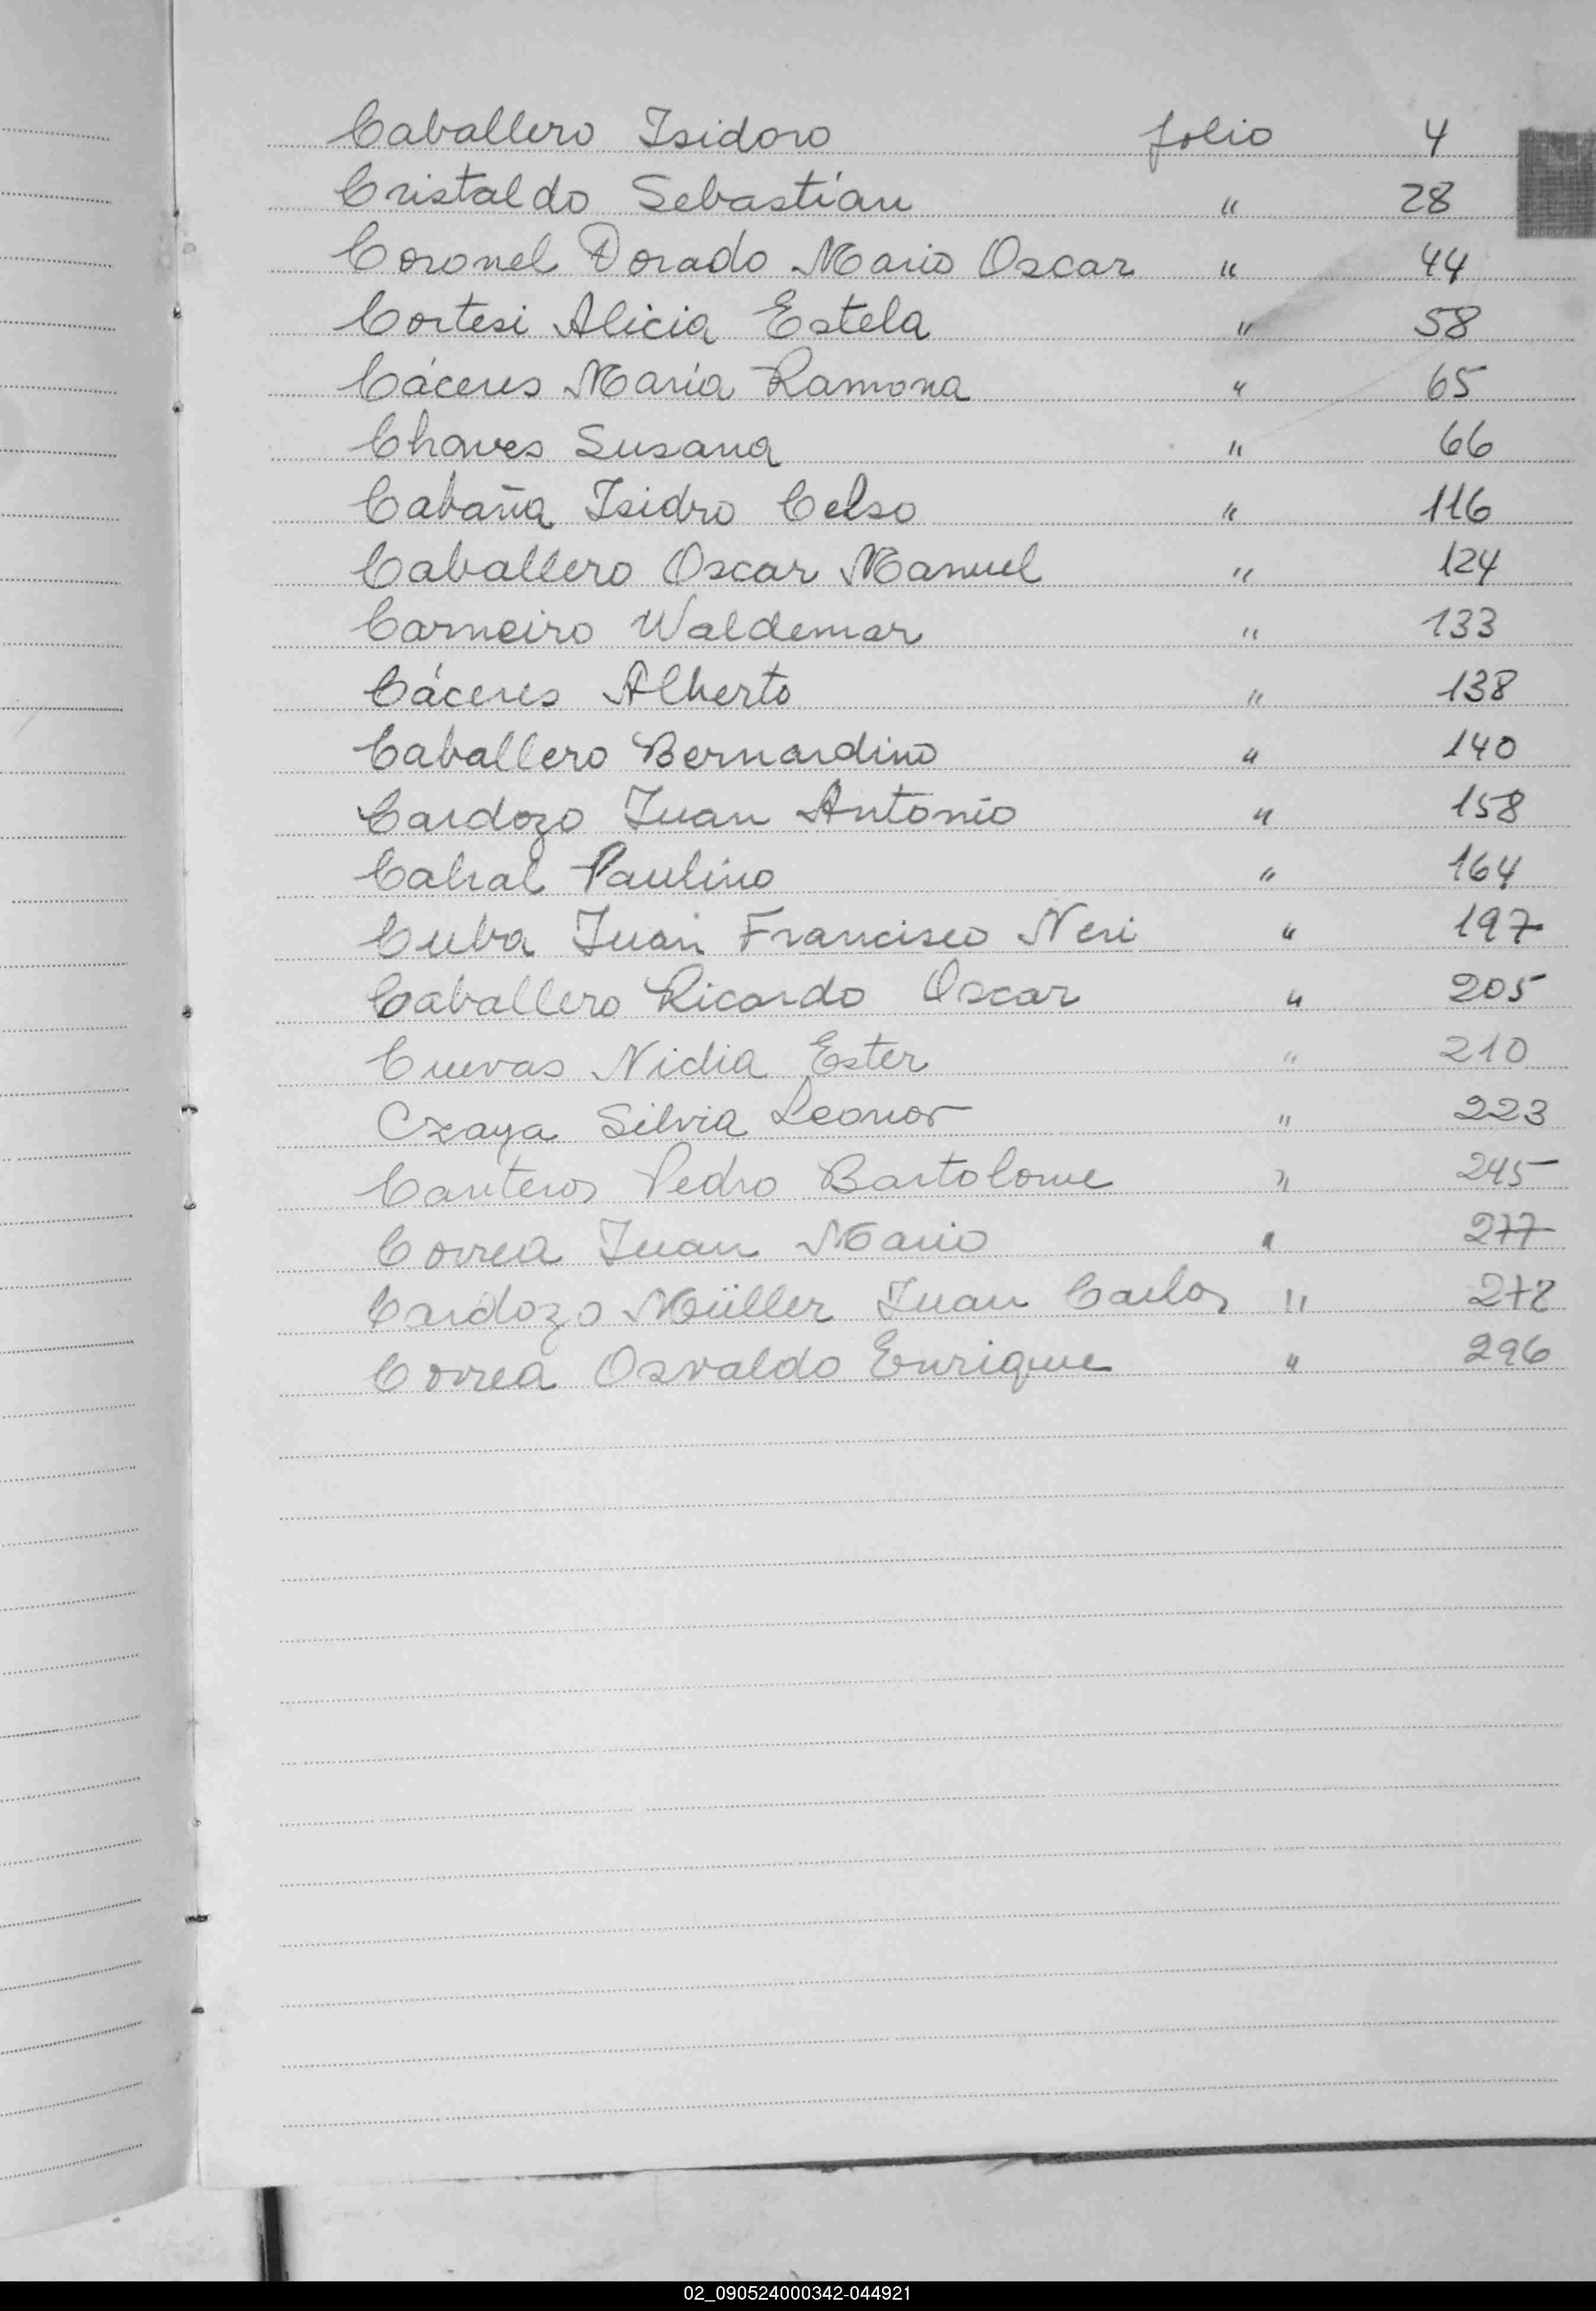 Caballero Isidoro folio 4
Cristaldo Sebastián " 28
Coronel Dorado Mario Oscar " 44
Cortesi Alicia Estela " 58
Cáceres María Ramona " 65
Chaves Susana " 66
Cabaña Isidro Celso " 116
Caballero Oscar Manuel " 124
Carneiro Waldemar " 133
Cáceres Alberto " 138
Caballero Bernardino " 140
Cardozo Juan Antonio " 158
Cabral Paulino " 164
Cuba Juan Francisco Neri " 197
Caballero Ricardo Oscar " 205
Cuevas Nidia Ester " 210
Czaya Silvia Leonor " 223
Canteros Pedro Bartolome " 245
Correa Juan Mario " 277
Cardozo Müller Juan Carlos " 278
Correa Osvaldo Enrique " 296
02_090524000342-044921